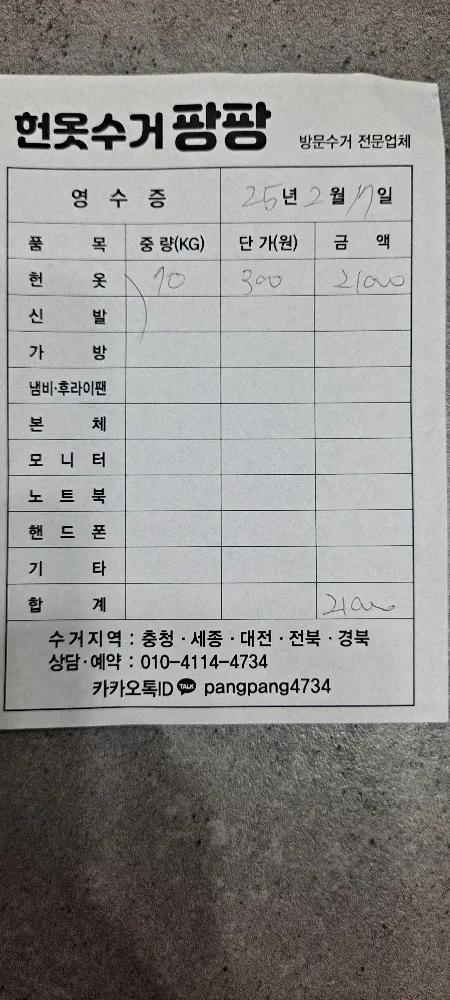 헌옷수거 팡팡 방문수거 전문업체
영 수 증 25년 2월 17일
품 목 중 량(KG) 단 가(원) 금 액
헌 옷 70 300 21000
신 발
가 방
냄비·후라이팬
본 체
모 니 터
노 트 북
핸 드 폰
기 타
합 계 21000
수거지역 : 충청 · 세종 · 대전 · 전북 · 경북
상담·예약 : 010-4114-4734
카카오톡ID TALK pangpang4734